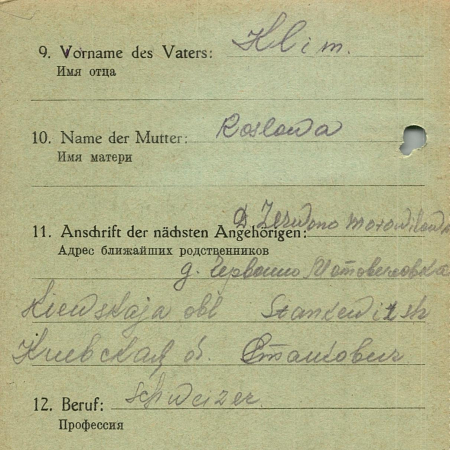 9. Vorname des Vaters: Klim.
Имя отца
10. Name der Mutter: Roslowa
Имя матери
11. Anschrift der nächsten Angehörigen:
Адрес ближайших родственников
Kiewskaja obl Stankewitsch
Киевская о.
12. Beruf: Schweizer.
Профессия